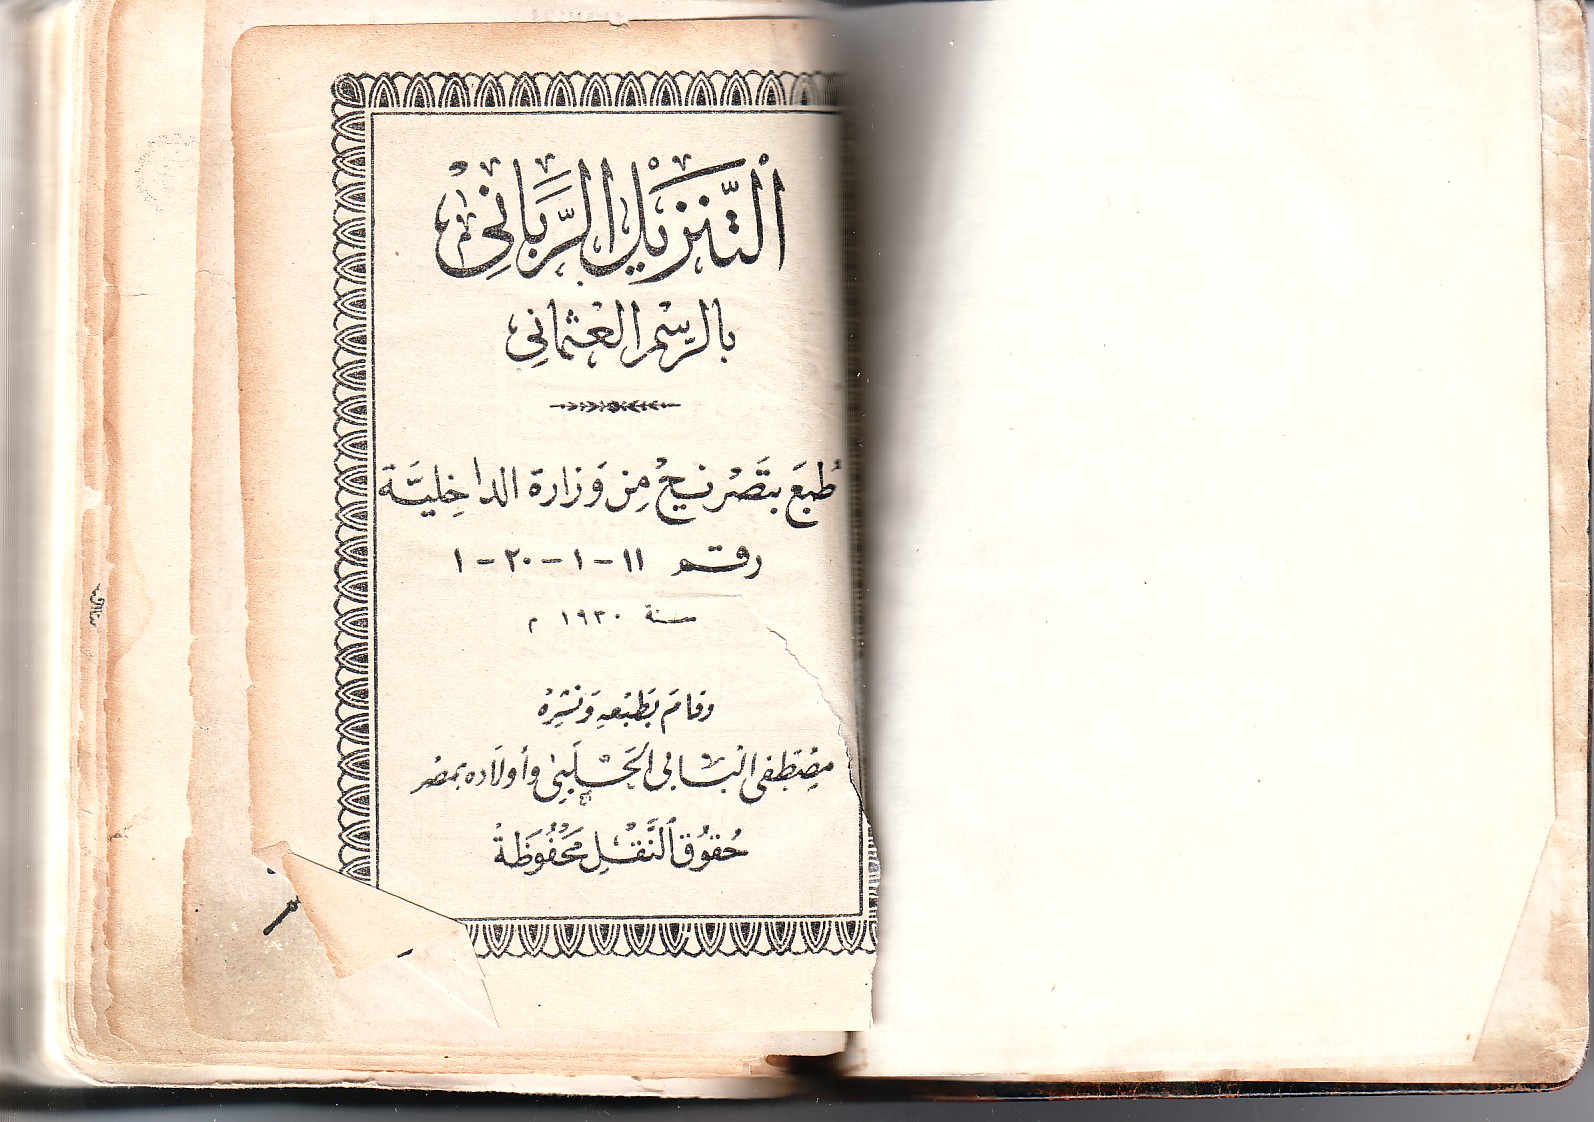 التَّنزيل الرَّبَانِي
بالرسْم العُثمانِي
طُبعَ بتَصْريح مِن وَزارة الداخِليَّة
رقم ١١-١-٢٠-١
سنة ١٩٣٠ م
وقامَ بطَبْعهِ وَنشرهْ
مصْطَفى البَابى الحَلَبِى وأولاَده بمصْر
حُقوُق النَّقْلِ مَحْفُوَظَةْ